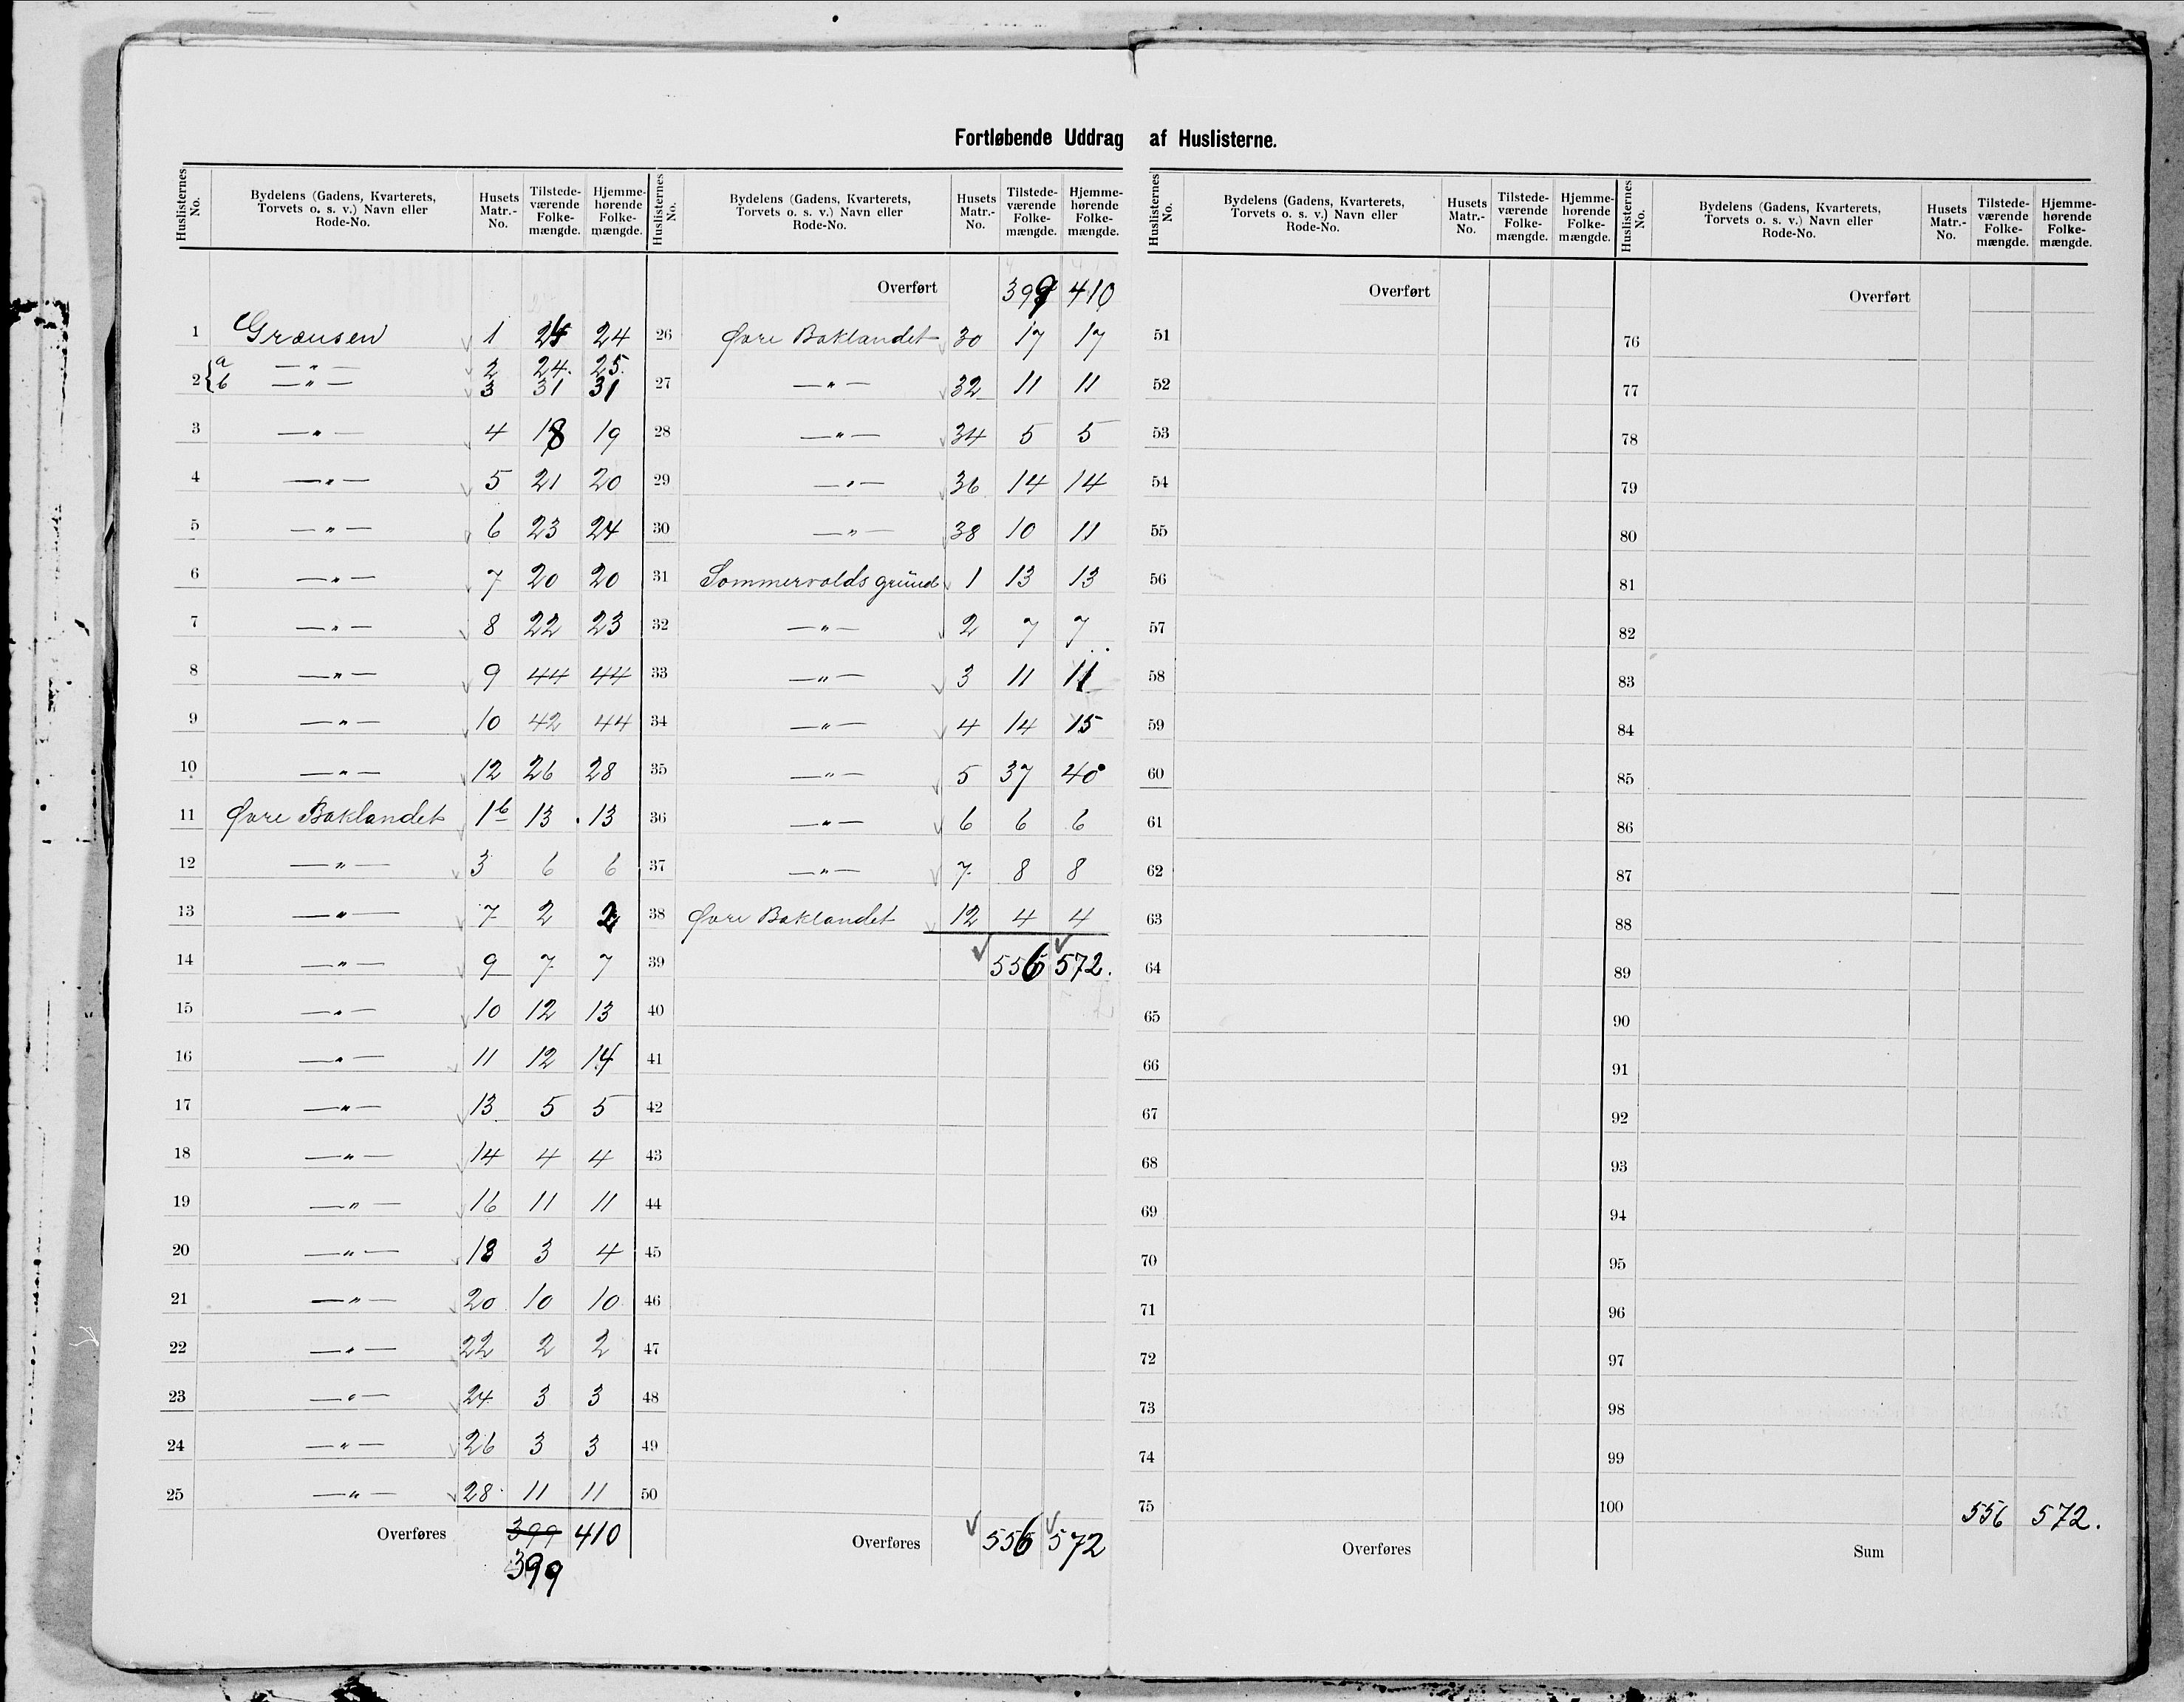 Fortløbende Uddrag af Huslisterne.
Huslisternes No. | Bydelens (Gadens, Kvarterets, Torvets o. s. v.) Navn eller Rode-No. | Husets Matr.-No. | Tilstedeværende Folkemængde. | Hjemmehørende Folkemængde.
1 Grænsen 1 25 24
2 {a —"— 2 24. 25.
b —"— 3 31 31
3 —"— 4 18 19
4 —"— 5 21 20
5 —"— 6 23 24
6 —"— 7 20 20
7 —"— 8 22 23
8 —"— 9 44 44
9 —"— 10 42 44
10 —"— 12 26 28
11 Øvre Baklandet 1b 13 13
12 —"— 3 6 6
13 —"— 7 2 2
14 —"— 9 7 7
15 —"— 10 12 13
16 —"— 11 12 14
17 —"— 13 5 5
18 —"— 14 4 4
19 —"— 16 11 11
20 —"— 18 3 4
21 —"— 20 10 10
22 —"— 22 2 2
23 —"— 24 3 3
24 —"— 26 3 3
25 —"— 28 11 11
Overføres 399 410
399
Huslisternes No. | Bydelens (Gadens, Kvarterets, Torvets o. s. v.) Navn eller Rode-No. | Husets Matr.-No. | Tilstedeværende Folkemængde. | Hjemmehørende Folkemængde.
Overført 399 410
26 Øvre Baklandet 30 17 17
27 —"— 32 11 11
28 —"— 34 5 5
29 —"— 36 14 14
30 —"— 38 10 11
31 Sommervolds grund 1 13 13
32 —"— 2 7 7
33 —"— 3 11 11
34 —"— 4 14 15
35 —"— 5 37 40
36 —"— 6 6 6
37 —"— 7 8 8
38 Øvre Baklandet 12 4 4
39 556 572.
40
41
42
43
44
45
46
47
48
49
50
Overføres 556 572
Huslisternes No. | Bydelens (Gadens, Kvarterets, Torvets o. s. v.) Navn eller Rode-No. | Husets Matr.-No. | Tilstedeværende Folkemængde. | Hjemmehørende Folkemængde.
Overført
51
52
53
54
55
56
57
58
59
60
61
62
63
64
65
66
67
68
69
70
71
72
73
74
75
Overføres
Huslisternes No. | Bydelens (Gadens, Kvarterets, Torvets o. s. v.) Navn eller Rode-No. | Husets Matr.-No. | Tilstedeværende Folkemængde. | Hjemmehørende Folkemængde.
Overført
76
77
78
79
80
81
82
83
84
85
86
87
88
89
90
91
92
93
94
95
96
97
98
99
100 556 572.
Sum